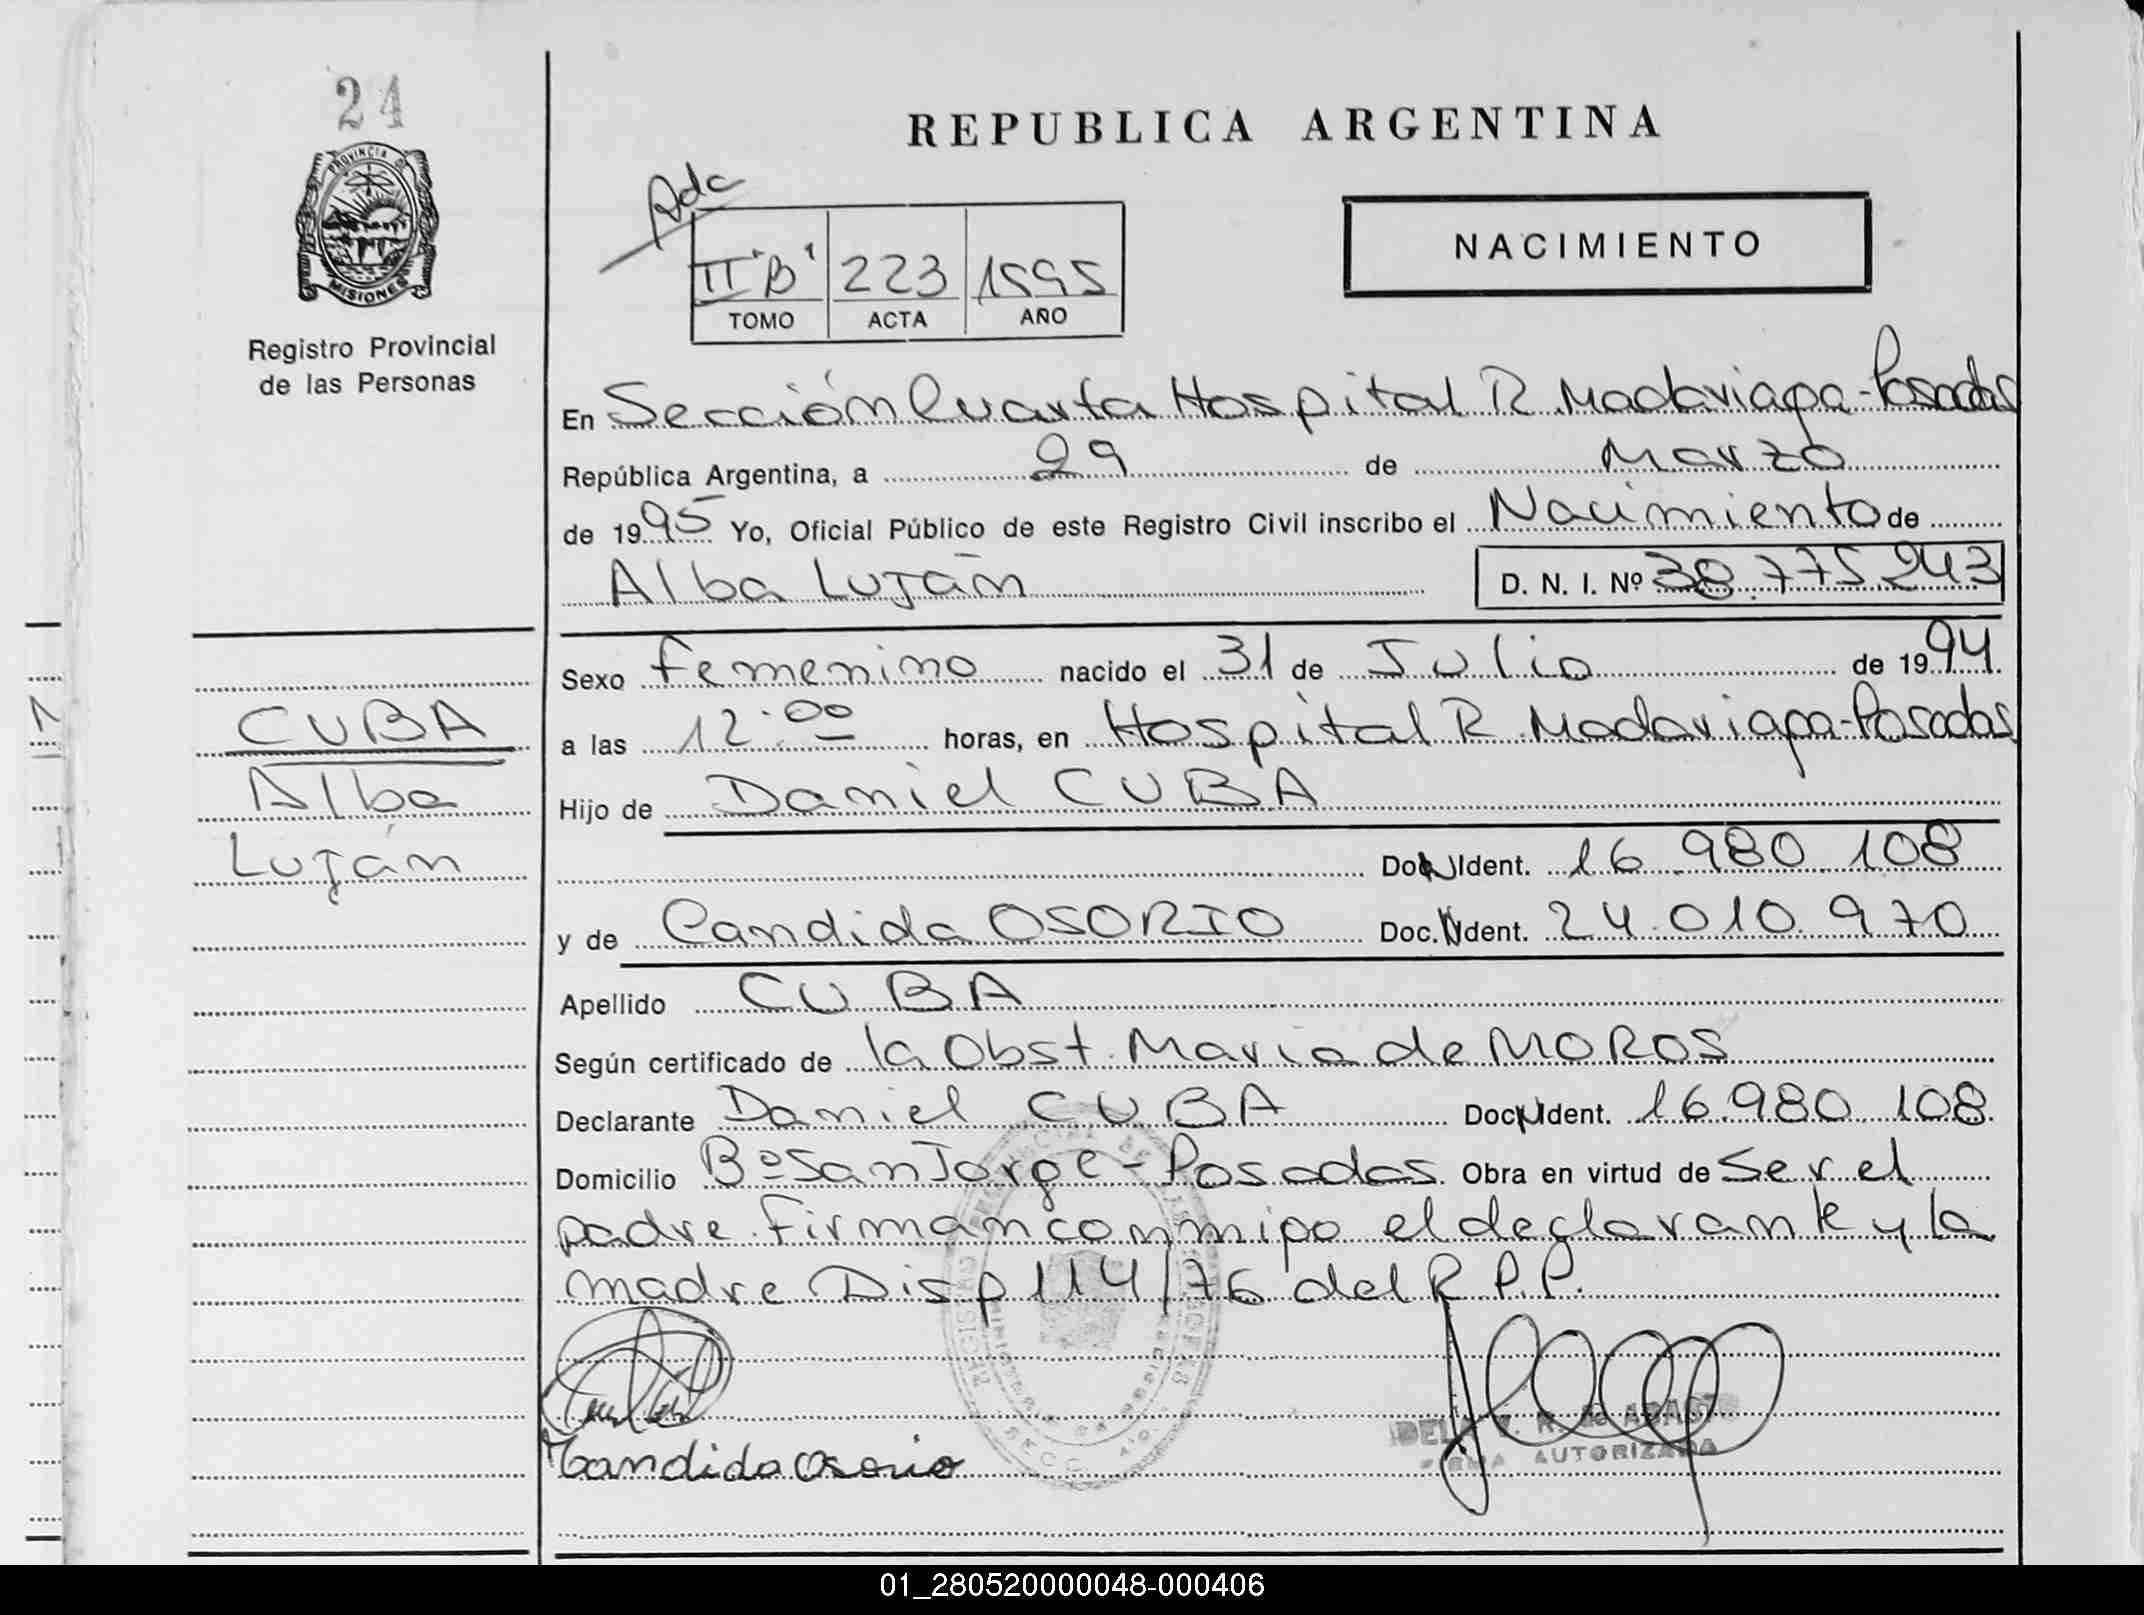 24
REPUBLICA ARGENTINA
PROVINCIA D
MISIONES
Registro Provincial
de las Personas
Ada
II "B" 223 1995
TOMO ACTA AÑO
NACIMIENTO
En Sección Cuarta Hospital R. Madariaga-Posadas
República Argentina, a 29 de Marzo
de 1995 Yo, Oficial Público de este Registro Civil inscribo el Nacimiento de
Alba Luján D. N. I. Nº 38.775.243
Sexo femenino nacido el 31 de Julio de 1994.
a las 12:00 horas, en Hospital R. Madariaga-Posadas
Hijo de Daniel CUBA
Doc. N Ident. 16.980.108
y de Candida OSORIO Doc. N Ident. 24.010.970
Apellido CUBA
Según certificado de la Obst. Maria de MOROS
Declarante Daniel CUBA Doc. N Ident. 16.980.108
Domicilio Bº San Jorge - Posadas. Obra en virtud de Ser el
padre. Firman conmigo el declarante y la
madre Disp 114/76 del R.P.P.
CUBA
Alba
Luján
Candida Osorio
AUTORIZADA
01_280520000048-000406